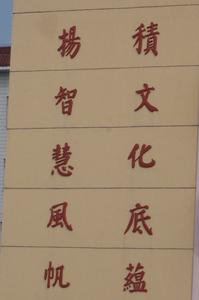 積文化底蘊
揚智慧風帆